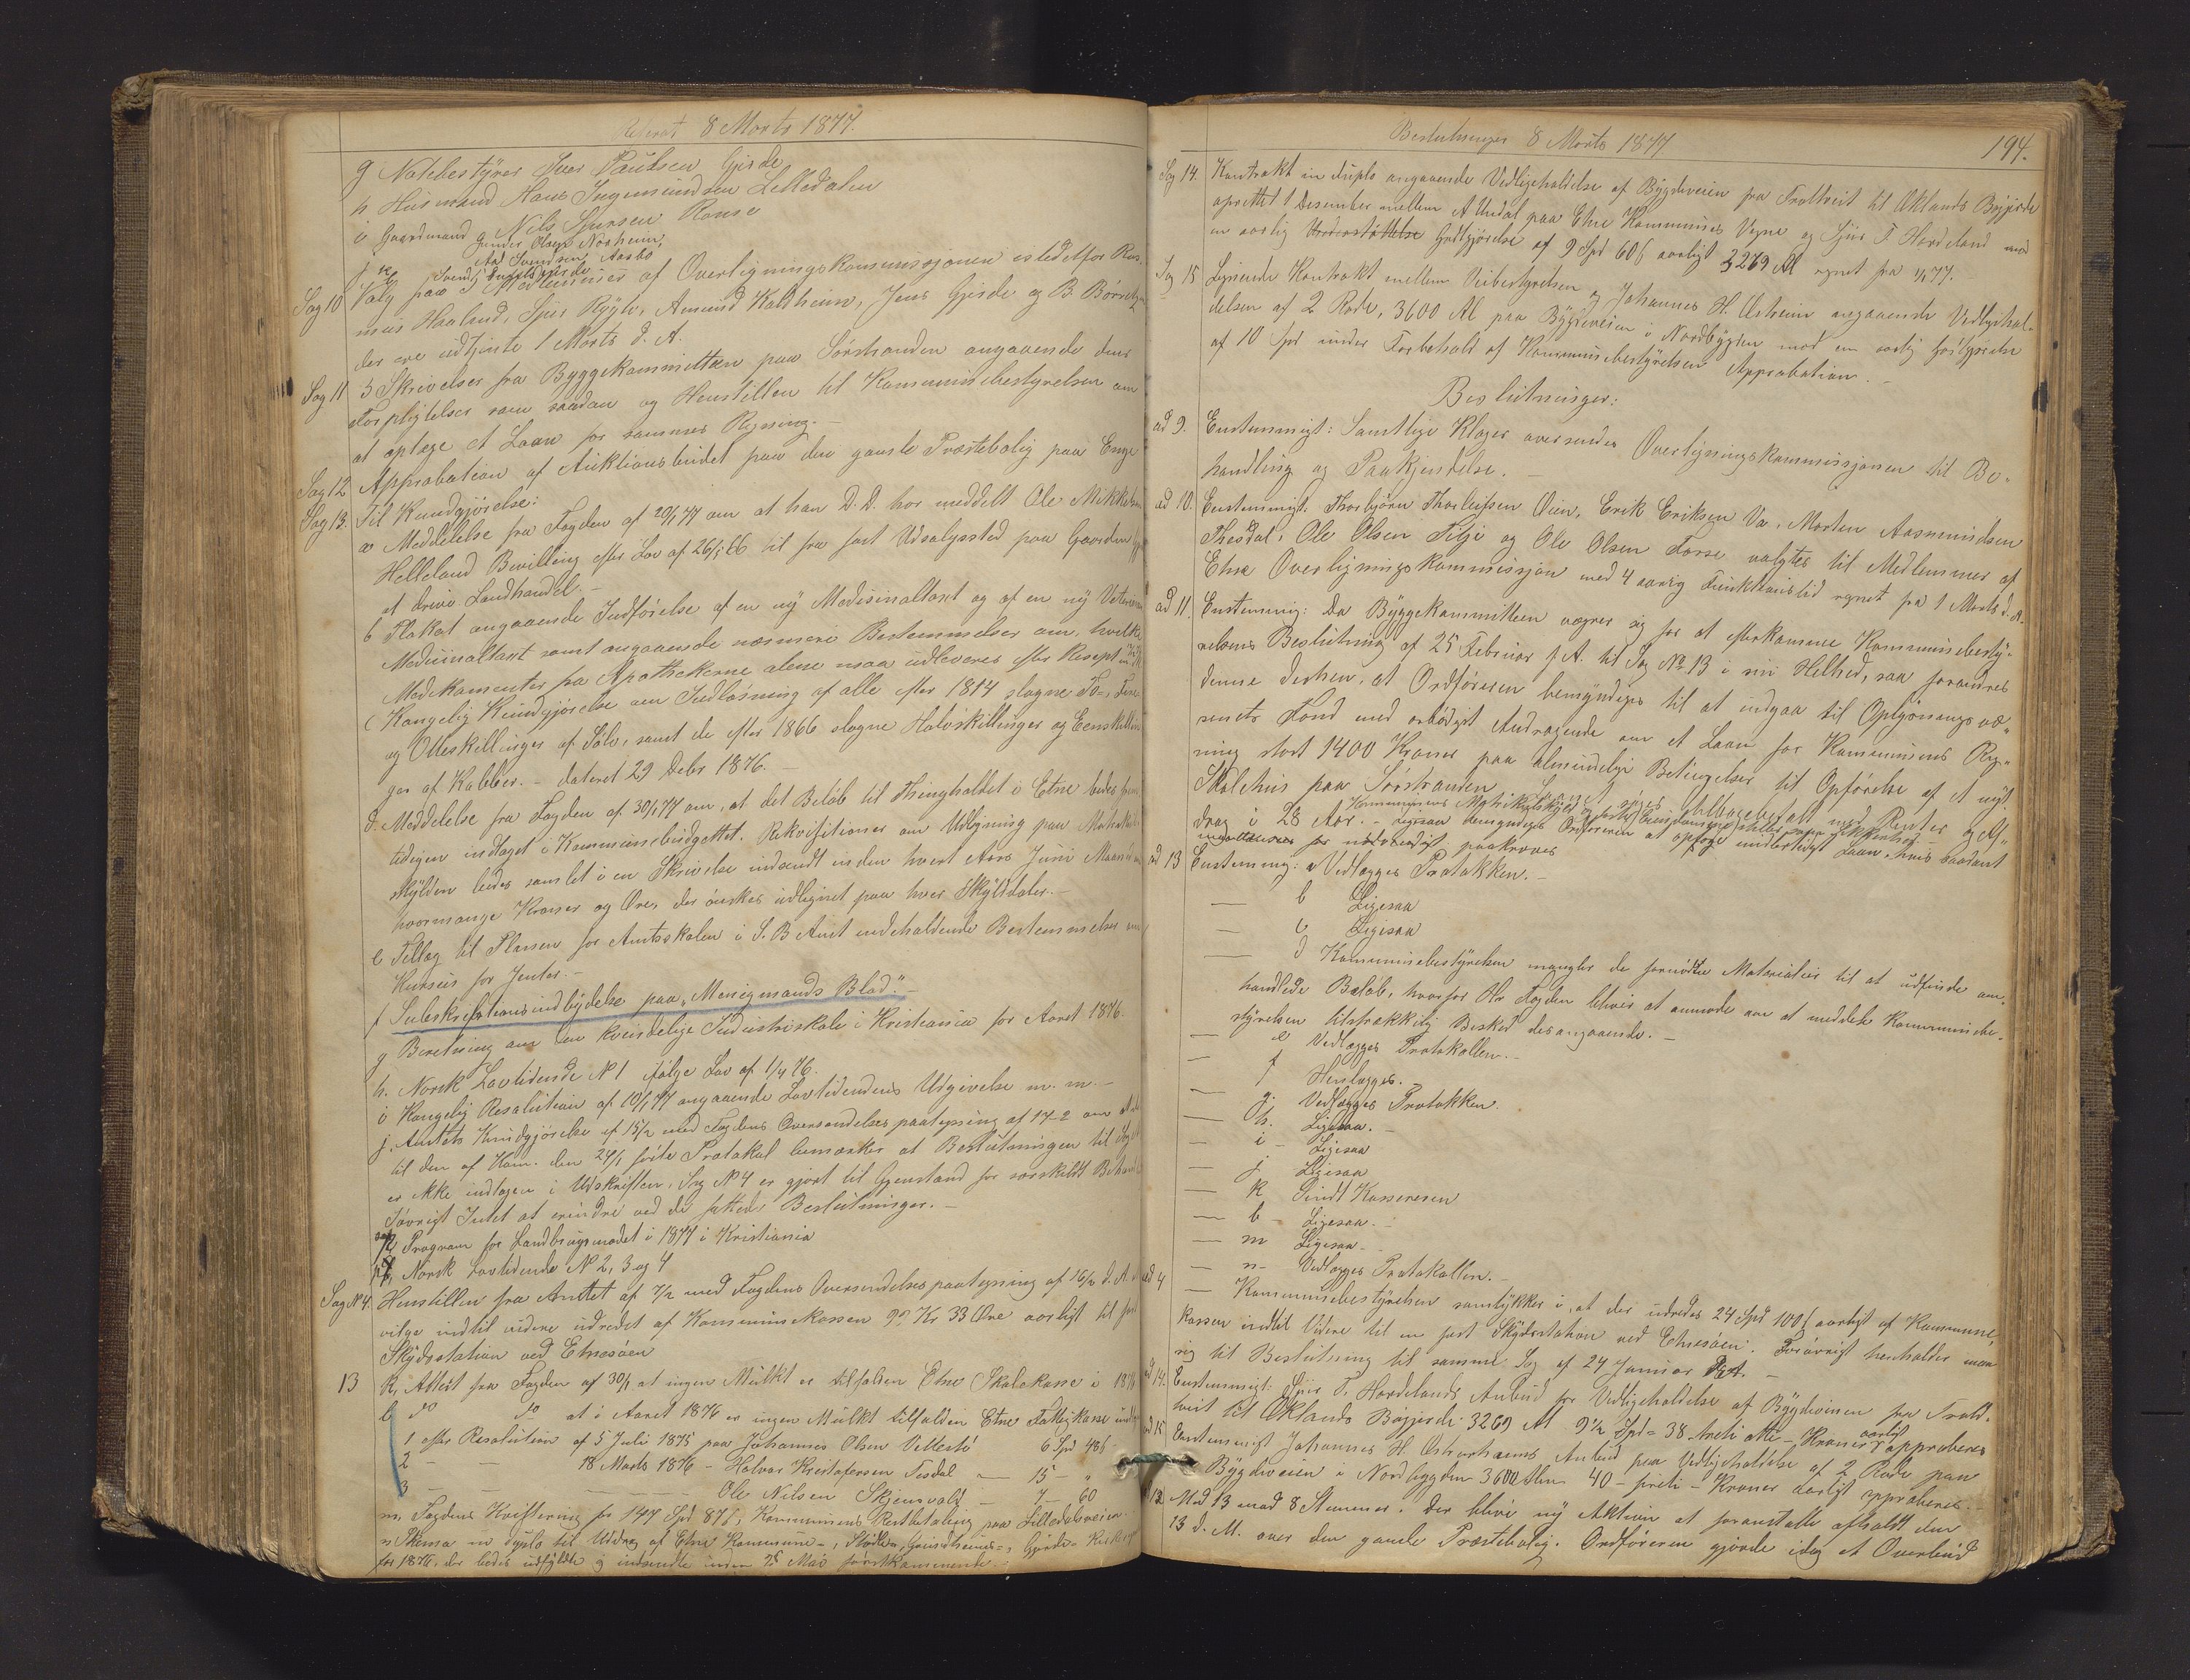 Referat 8 Marts 1877.
g Notebestyrer Iver Paulsen Gjerde
h Husmand Hans Ingemundsen Litledalen
i Gaardmand Nils Sjursen Ranse
j Gunder Olsen Norheim,
k Aad Svendsen Aasbø
Sag 10 Valg paa 5 Medlemmer af Overligningskommissjonen istedetfor Ras-
mus Haaland, Sjur Rygh, Amund Kaldheim, Jens Gjerde og B. Børretzen
der ere udtjente 1 Marts d. A.
Sag 11 3 Skrivelser fra Byggekommitteen paa Sørstranden angaaende dens
Forpligtelser som saadan og Henstillen til Kommunebestyrelsen om
at optage et Laan for sammes Regning.-
Sag 12 Approbation af Auktionsbudet paa den gamle Præstebolig paa Enge
Sag 13. Til Kundgjørelse:
a Meddelelse fra Fogden af 20/1 77 om at han D.D. har meddelt Ole Mikkelsen
Helleland Bevilling efter Lov af 26/5 66 til fra fast Udsalgssted paa Gaarden
at drive Landhandel.-
b Plakat angaaende Indførelse af en ny Medisinaltaxt og af en ny Veterinær
Medicinaltaxt samt angaaende nærmere Bestemmelser om, hvilke
Medikamenter fra Apothekerne alene maa udleveres efter Resept
c Kongelig Kundgjørelse om Indløsning af alle efter 1814 slagne To-, Fire
og Otteskillinger af Sølv, samt de efter 1866 slagne Halvskillinger og Eenskillin
ger af Kobber. - dateret 29 Debr 1876.-
d. Meddelelse fra Fogden af 30/1 77 om, at det Beløb til Thingholdet i Etne bedes frem
tidigen indtaget i Kommunebudgettet. Rekvisitioner om Udligning paa Matrikul
skylden bedes samlet i en Skrivelse indsendt inden hvert Aars Juni Maaned
hvormange Kroner og Øre, der ønskes udlignet paa hver Skylddaler.-
e Tillæg til Planen for Amtsskolen i S. B Amt indeholdende Bestemmelser om
Kursus for Jenter.-
f Subskriptionsindbydelse paa "Menigmands Blad".-
g Beretning om den kvindelige Industriskole i Kristiania for Aaret 1876.
h. Norsk Lovtidende N 1 ifølge Lov af 1/4 76.
i Kongelig Resolution af 10/1 77 angaaende Lovtidendens Udgivelse m. m.-
j. Amtets Kundgjørelse af 15/2 med Fogdens Oversendelsespaategning af 17-2 om at
til den af Kom. den 24/1 førte Protokol bemærkes at Beslutningen til Sag
er ikke indtagen i Udskriften. Sag N 4 er gjort til Gjenstand for særskildt Behand
Iøvrigt Intet at erindre ved de fattede Beslutninger.-
Program for Landbrugsmødet i 1877 i Kristiania
Norsk Lovtidende N 2, 3 og 4
Sag N 4. Henstillen fra Amtet af 7/2 med Fogdens Oversendelsespaategning af 16/2 d. A.
vilge indtil videre udredet af Kommunekassen 99 Kr 33 Øre aarligt til fast
Skydsstation ved Etnesøen
13 k, Attest fra Fogden af 30/1 at ingen Mulkt er tilfalden Etne Skolekasse i 1876
l do do at i Aaret 1876 er ingen Mulkt tilfalden Etne Fattigkasse
1 efter Resolution af 5 Juli 1875 paa Johannes Olsen Vettestø 6 Spd 48 ß
2 - - 18 Marts 1876 - Halvor Kristofersen Tesdal - 15 - "
3 - - Ole Nilsen Skjensvold - 7 - 60
m Fogdens Kvittering for 147 Spd 87 ß, Kommunens Restbetaling paa Litledalsveien.
n Skema in duplo til Uddrag af Etne Kommune-,
for 1876, der bedes udfyldte og indsendte inden 25 Mai førstkommende.-
Beslutninger 8 Marts 1877
194.
Sag 14. Kontrakt in duplo angaaende Vedligeholdelse af Bygdeveien fra Troltveit til Øklands Bøgjerde
oprettet 1 Desember mellem A Undal paa Etne Kommunes Vegne og Sjur T. Hordeland mod
en aarlig Understøttelse Godtgjørelse af 9 Spd 60 ß aarligt 3269 Al regnet fra 1/1 77.
Sag 15 Lignende Kontrakt mellem Veibestyrelsen og Johannes H. Østreim angaaende Vedligehol-
delsen af 2 Rode, 3600 Al paa Bygdeveien i Nordbygden mod en aarlig Godtgjørelse
af 10 Spd under Forbehold af Kommunebestyrelsen Approbation.-
Beslutninger:
ad 9. Enstemmigt: Samtlige Klager oversendes Overligningskommissjonen til Be-
handling og Paakjendelse.-
ad 10. Enstemmigt: Thorbjørn Thorleifsen Øien, Erik Eriksen Va, Morten Aasmundsen
Thesdal, Ole Olsen Tilje og Ole Olsen Fosse valgtes til Medlemmer af
Etne Overligningskommissjon med 4 aarig Funktionstid regnet fra 1 Marts d. A.
ad 11. Enstemmig: Da Byggekommitteen vægrer sig for at efterkomme Kommunebesty-
relsens Beslutning af 25 Februar f A. til Sag No 13 i sin Helhed, saa forandres
denne derhen, at Ordføreren bemyndiges til at indgaa til Oplysningsvæ-
senets Fond med ærbødigst Andragende om et Laan for Kommunens Reg-
ning stort 1400 Kroner paa almindelige Betingelser til Opførelse af et nyt
Skolehus paa Sørstranden Laanet søges tilbagebetalt med Renter og Af-
drag i 28 Aar. - Kommunens Matrikulskyld
Ligesaa bemyndiges Ordføreren at optage midlertidigt Laan, hvis saadant
imellemtid før nødvendigt paakræves
ad 13 Enstemmig: a Vedlægges Protokken.-
— b Ligesaa
— c Ligesaa
— d Kommunebestyrelsen mangler de fornødne Materialier til at udfinde om-
handlede Beløb, hvorfor Hr. Fogden bliver at anmode om at meddele Kommunebe-
styrelsen tilstrækkelig Besked desangaaende.-
— e Vedlægges Protokollen.-
— f Henlægges.-
— g. Vedlægges Protokken.
— h. Ligesaa.-
— i - Ligesaa
— j Ligesaa
— k Sendt Kassereren
— l - Ligesaa.-
— m Ligesaa-
— n- Vedlægges Protokollen.-
ad 4 — Kommunebestyrelsen samtykker i, at der udredes 24 Spd 100 ß aarligt af Kommune-
kassen indtil Videre til en fast Skydsstation ved Etnesøen. Forøvrigt henholder man
sig til Beslutning til samme Sag af 24 Januar d. A.-
ad 14. Enstemmigt: Sjur T. Hordelands Anbud for Vedligeholdelse af Bygdeveien fra Trold-
veit til Øklands Bøgjerde 3269 Al 9 1/2 Spd = 38 treti otte - Kroner aarligt approberes
ad 15 Enstemmigt Johannes H. Østreheims Anbud paa Vedligeholdelse af 2 Rode paa
Bygdeveien i Nordbygden 3600 Alen 40 - fireti - Kroner aarligt approberes.-
12 Mod 13 mod 8 Stemmer: Der blive ny Aktion at foranstalte afholdt den
13 d. M. over den gamle Præstebolig. Ordføreren gjorde idag et Overbud